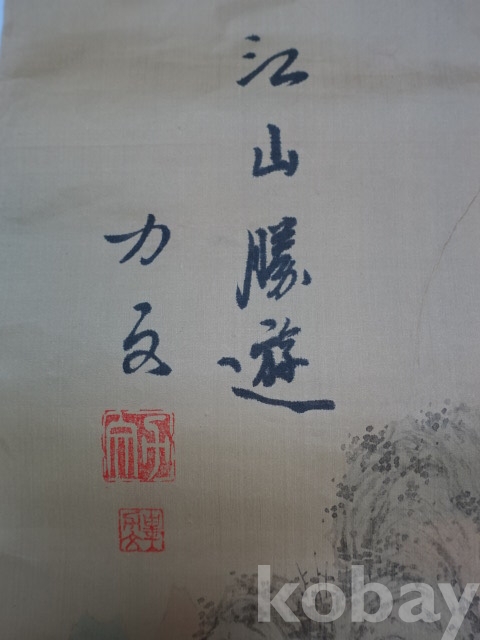 江山勝遊
力文
kobay